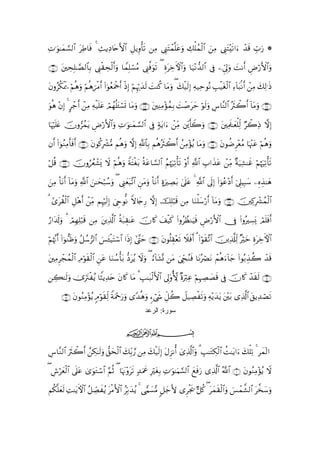 ۞ رَبِّ قَدْ ءَاتَيْتَنِى مِنَ ٱلْمُلْكِ وَعَلَّمْتَنِى مِن تَأْوِيلِ ٱلْأَحَادِيثِ ۚ فَاطِرَ ٱلسَّمَٰوَٰتِ
وَٱلْأَرْضِ أَنتَ وَلِىِّۦ فِى ٱلدُّنْيَا وَٱلْءَاخِرَةِ ۖ تَوَفَّنِى مُسْلِمًا وَأَلْحِقْنِى بِٱلصَّٰلِحِينَ ۝
ذَٰلِكَ مِنْ أَنۢبَآءِ ٱلْغَيْبِ نُوحِيهِ إِلَيْكَ ۖ وَمَا كُنتَ لَدَيْهِمْ إِذْ أَجْمَعُوٓا۟ أَمْرَهُمْ وَهُمْ يَمْكُرُونَ
۝ وَمَآ أَكْثَرُ ٱلنَّاسِ وَلَوْ حَرَصْتَ بِمُؤْمِنِينَ ۝ وَمَا تَسْـَٔلُهُمْ عَلَيْهِ مِنْ أَجْرٍ ۚ إِنْ هُوَ
إِلَّا ذِكْرٌ لِّلْعَٰلَمِينَ ۝ وَكَأَيِّن مِّنْ ءَايَةٍ فِى ٱلسَّمَٰوَٰتِ وَٱلْأَرْضِ يَمُرُّونَ عَلَيْهَا
وَهُمْ عَنْهَا مُعْرِضُونَ ۝ وَمَا يُؤْمِنُ أَكْثَرُهُم بِٱللَّهِ إِلَّا وَهُم مُّشْرِكُونَ ۝ أَفَأَمِنُوٓا۟ أَن
تَأْتِيَهُمْ غَٰشِيَةٌ مِّنْ عَذَابِ ٱللَّهِ أَوْ تَأْتِيَهُمُ ٱلسَّاعَةُ بَغْتَةً وَهُمْ لَا يَشْعُرُونَ ۝ قُلْ
هَٰذِهِۦ سَبِيلِىٓ أَدْعُوٓا۟ إِلَى ٱللَّهِ ۚ عَلَىٰ بَصِيرَةٍ أَنَا۠ وَمَنِ ٱتَّبَعَنِى ۖ وَسُبْحَٰنَ ٱللَّهِ وَمَآ أَنَا۠ مِنَ
ٱلْمُشْرِكِينَ ۝ وَمَآ أَرْسَلْنَا مِن قَبْلِكَ إِلَّا رِجَالًا نُّوحِىٓ إِلَيْهِم مِّنْ أَهْلِ ٱلْقُرَىٰٓ ۗ
أَفَلَمْ يَسِيرُوا۟ فِى ٱلْأَرْضِ فَيَنظُرُوا۟ كَيْفَ كَانَ عَٰقِبَةُ ٱلَّذِينَ مِن قَبْلِهِمْ ۗ وَلَدَارُ
ٱلْءَاخِرَةِ خَيْرٌ لِّلَّذِينَ ٱتَّقَوْا۟ ۗ أَفَلَا تَعْقِلُونَ ۝ حَتَّىٰٓ إِذَا ٱسْتَيْـَٔسَ ٱلرُّسُلُ وَظَنُّوٓا۟ أَنَّهُمْ
قَدْ كُذِبُوا۟ جَآءَهُمْ نَصْرُنَا فَنُجِّىَ مَن نَّشَآءُ ۖ وَلَا يُرَدُّ بَأْسُنَا عَنِ ٱلْقَوْمِ ٱلْمُجْرِمِينَ
۝ لَقَدْ كَانَ فِى قَصَصِهِمْ عِبْرَةٌ لِّأُو۟لِى ٱلْأَلْبَٰبِ ۗ مَا كَانَ حَدِيثًا يُفْتَرَىٰ وَلَٰكِن
تَصْدِيقَ ٱلَّذِى بَيْنَ يَدَيْهِ وَتَفْصِيلَ كُلِّ شَىْءٍ وَهُدًى وَرَحْمَةً لِّقَوْمٍ يُؤْمِنُونَ ۝
سورة: الرعد
بِسْمِ ٱللَّهِ ٱلرَّحْمَٰنِ ٱلرَّحِيمِ
الٓمٓر ۚ تِلْكَ ءَايَٰتُ ٱلْكِتَٰبِ ۗ وَٱلَّذِىٓ أُنزِلَ إِلَيْكَ مِن رَّبِّكَ ٱلْحَقُّ وَلَٰكِنَّ أَكْثَرَ ٱلنَّاسِ
لَا يُؤْمِنُونَ ۝ ٱللَّهُ ٱلَّذِى رَفَعَ ٱلسَّمَٰوَٰتِ بِغَيْرِ عَمَدٍ تَرَوْنَهَا ۖ ثُمَّ ٱسْتَوَىٰ عَلَى ٱلْعَرْشِ ۖ
وَسَخَّرَ ٱلشَّمْسَ وَٱلْقَمَرَ ۖ كُلٌّ يَجْرِى لِأَجَلٍ مُّسَمًّى ۚ يُدَبِّرُ ٱلْأَمْرَ يُفَصِّلُ ٱلْءَايَٰتِ لَعَلَّكُم